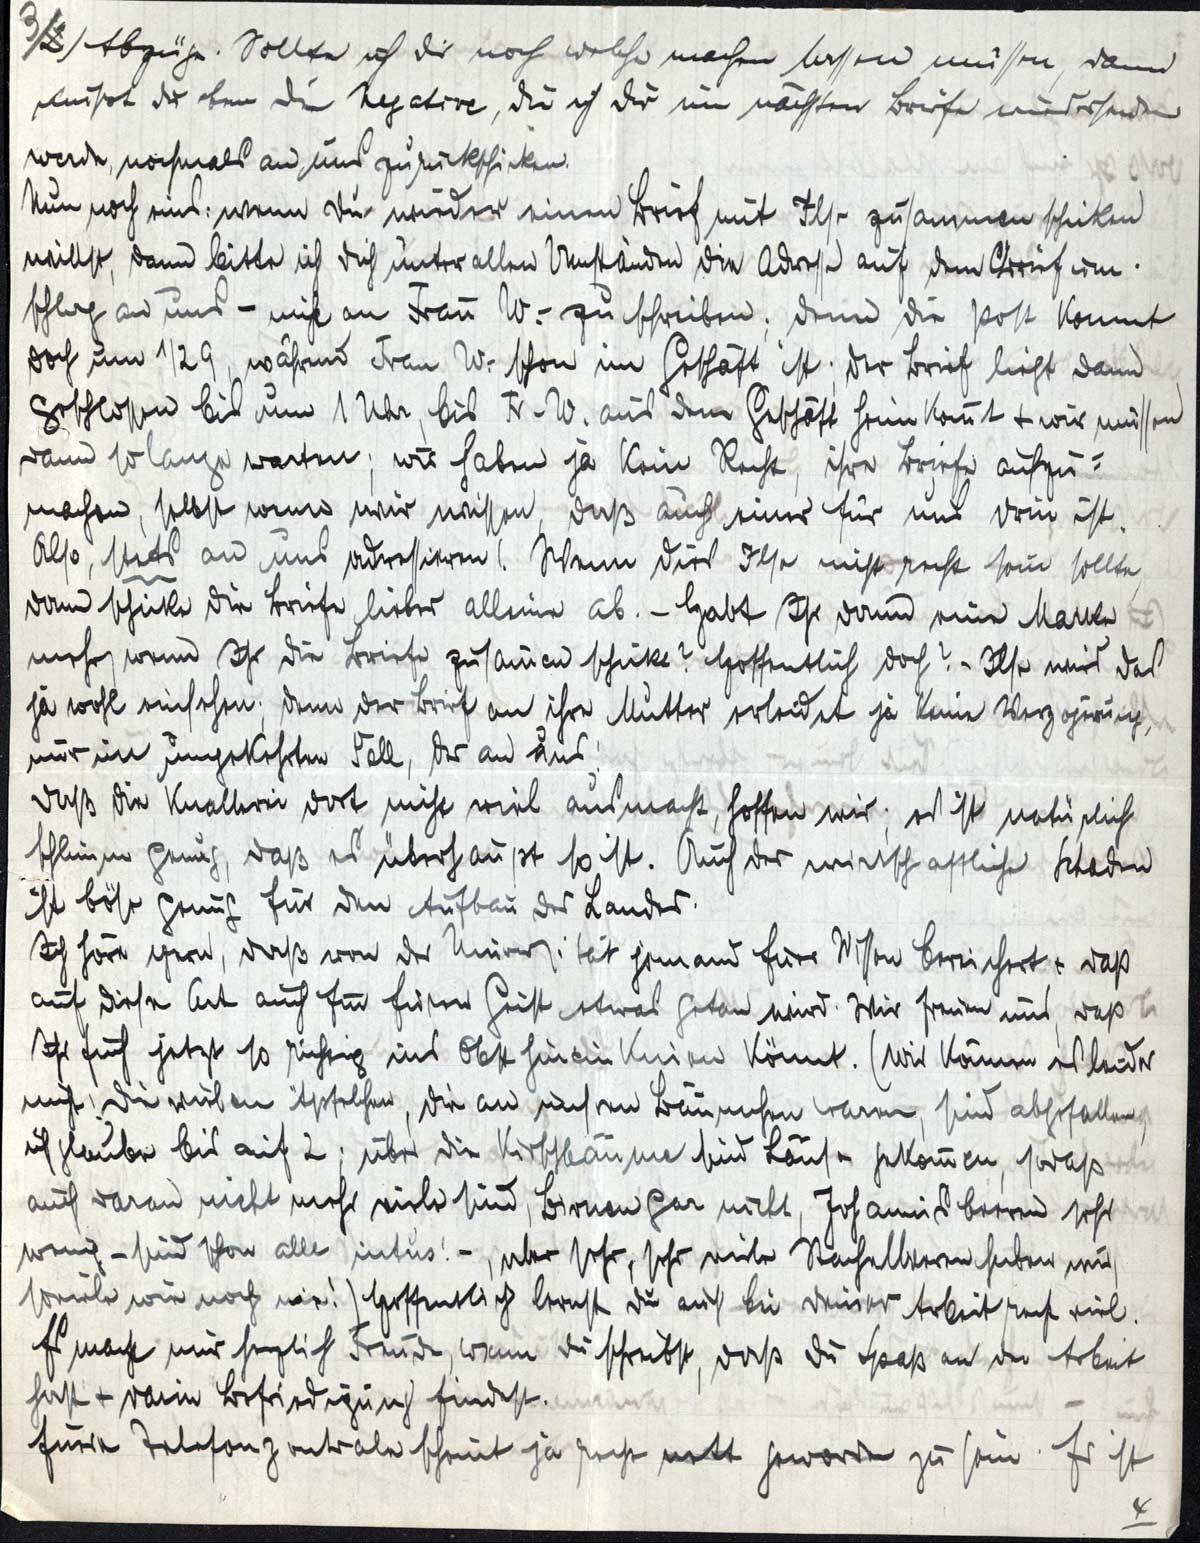 3/ Abzüge. Sollte ich dir noch welche machen lassen müssen, dann
musst du eben die Negative, die ich dir im nächsten Briefe wiedersenden
werde, nochmals an uns zurückschicken.
Nun noch eins: wenn Du wieder einen Brief mit Ilse zusammen schicken
willst, dann bitte ich dich unter allen Umständen die Adresse auf dem Briefum-
schlag an uns – nicht an Frau W.- zu schreiben; denn die Post kommt
doch um 1/2 9, während Frau W. schon im Geschäft ist; der Brief liegt dann
geschlossen bis um 1 Uhr, bis Fr. W. aus dem Geschäft heimkommt + wir müssen
dann solange warten; wir haben ja kein Recht, ihre Briefe aufzu=
machen, selbst wenn wir wissen, daß auch einer für uns drin ist.
Also, stets an uns adressieren! Wenn dies Ilse nicht recht sein sollte,
dann schicke die Briefe lieber alleine ab. – Habt Ihr denn eine Marke
mehr, wenn Ihr die Briefe zusammen schickt? Hoffentlich doch? – Ilse wird das
ja wohl einsehen; denn der Brief an ihre Mutter erleidet ja keine Verzögerung,
nur im umgekehrten Fall, der an uns!
Daß die Knallerei dort nicht viel ausmacht, hoffen wir; es ist natürlich
schlimm genug, daß es überhaupt so ist. Auch der wirtschaftliche Schaden
ist böse genug für den Aufbau des Landes.
Ich höre gern, daß von der Universität jemand Euer Wissen bereichert + daß
auf diese Art auch für Euren Geist etwas getan wird. Wir freuen uns, daß
Ihr Euch jetzt so richtig ins Obst hineinknien könnt. (Wir können es leider
nicht! Die Äpfelchen, die an unsren Bäumchen waren, sind abgefallen,
ich glaube bis auf 2; über die Kirschbäume sind Läuse gekommen, sodaß
auch daran nicht mehr viele sind, Birnen gar nicht, Johannisbeeren sehr
wenig – sind schon alle intus! –, aber sehr, sehr viele Stachelbeeren haben wir,
soviele wie noch nie!) Hoffentlich lernst du auch bei deiner Arbeit recht viel.
Es macht mir herzlich Freude, wenn du schreibst, daß du Spaß an der Arbeit
hast + darin Befriedigung findest.
Eure Telefonzentrale scheint ja recht nett geworden zu sein. Es ist
4